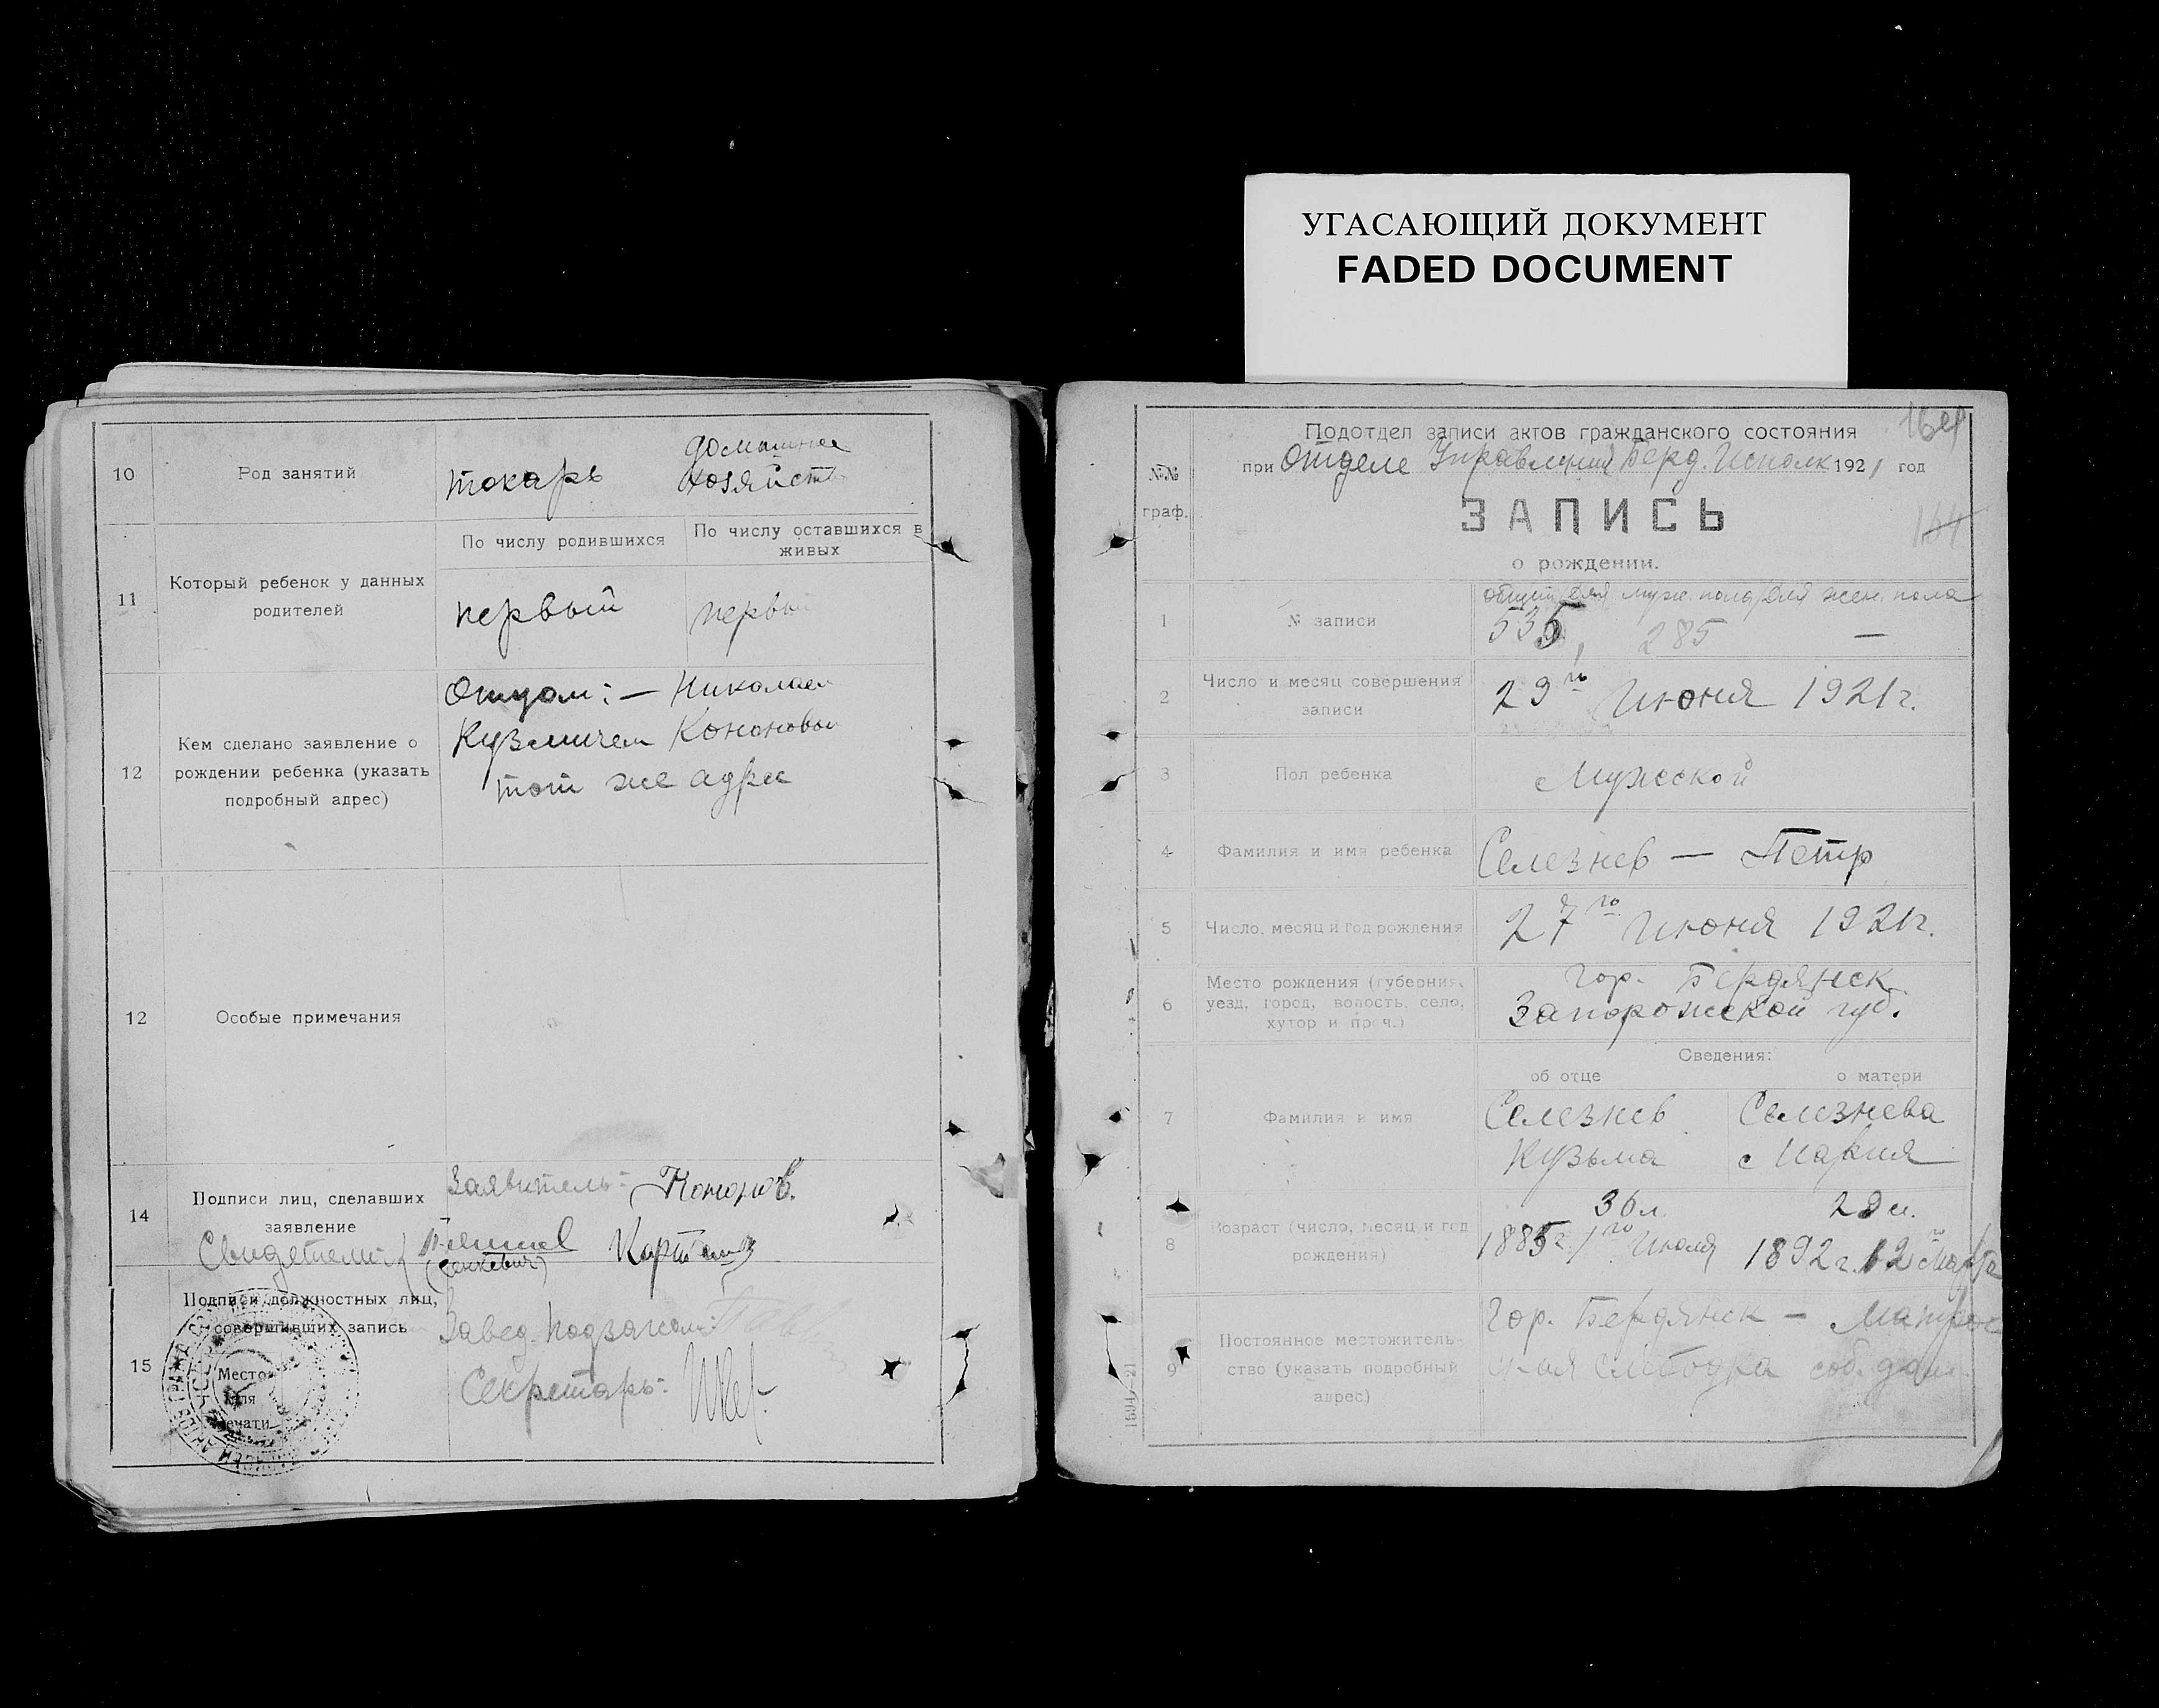 УГАСАЮЩИЙ ДОКУМЕНТ
FADED DOCUMENT
10
Род занятий
токарь
домашнее
хозяйств
11
Который ребенок у данных
родителей
По числу родившихся
По числу оставшихся в
живых
первый
первы
12
Кем сделано заявление о
рождении ребенка (указать
подробный адрес)
Отцом: — Николаем
Кузьмичем Кононовы
тот же адрес
12
Особые примечания
14
Подписи лиц, сделавших
заявление
Заявитель: Кононов.
Свидетели
15
Подписи должностных лиц,
совершивших запись
Место
для
печати
Завед. подзагсом:
Секретарь:
164
Подотдел записи актов гражданского состояния
при Отделе Управления Берд. Исполк. 1921 год
№№
граф.
ЗАПИСЬ
164
о рождении.
1
№ записи
общий для муж. пола для жен. пола
535, 285 —
2
Число и месяц совершения
записи
29го Июня 1921 г.
3
Пол ребенка
Мужской
4
Фамилия и имя ребенка
Селезнев — Петр
5
Число, месяц и год рождения
27го Июня 1921 г.
6
Место рождения (губерния,
уезд, город, волость, село,
хутор и проч.)
гор. Бердянск
Запорожской губ.
Сведения:
об отце
о матери
7
Фамилия и имя
Селезнев
Кузьма
Селезнева
Мария
8
Возраст (число, месяц и год
рождения)
36 л.
1885 г. 1го Июля
29 л.
1892 г. 12го Марта
9
Постоянное местожитель-
ство (указать подробный
адрес)
Гор. Бердянск — Матрос
ская слободка соб. дом
1694—21